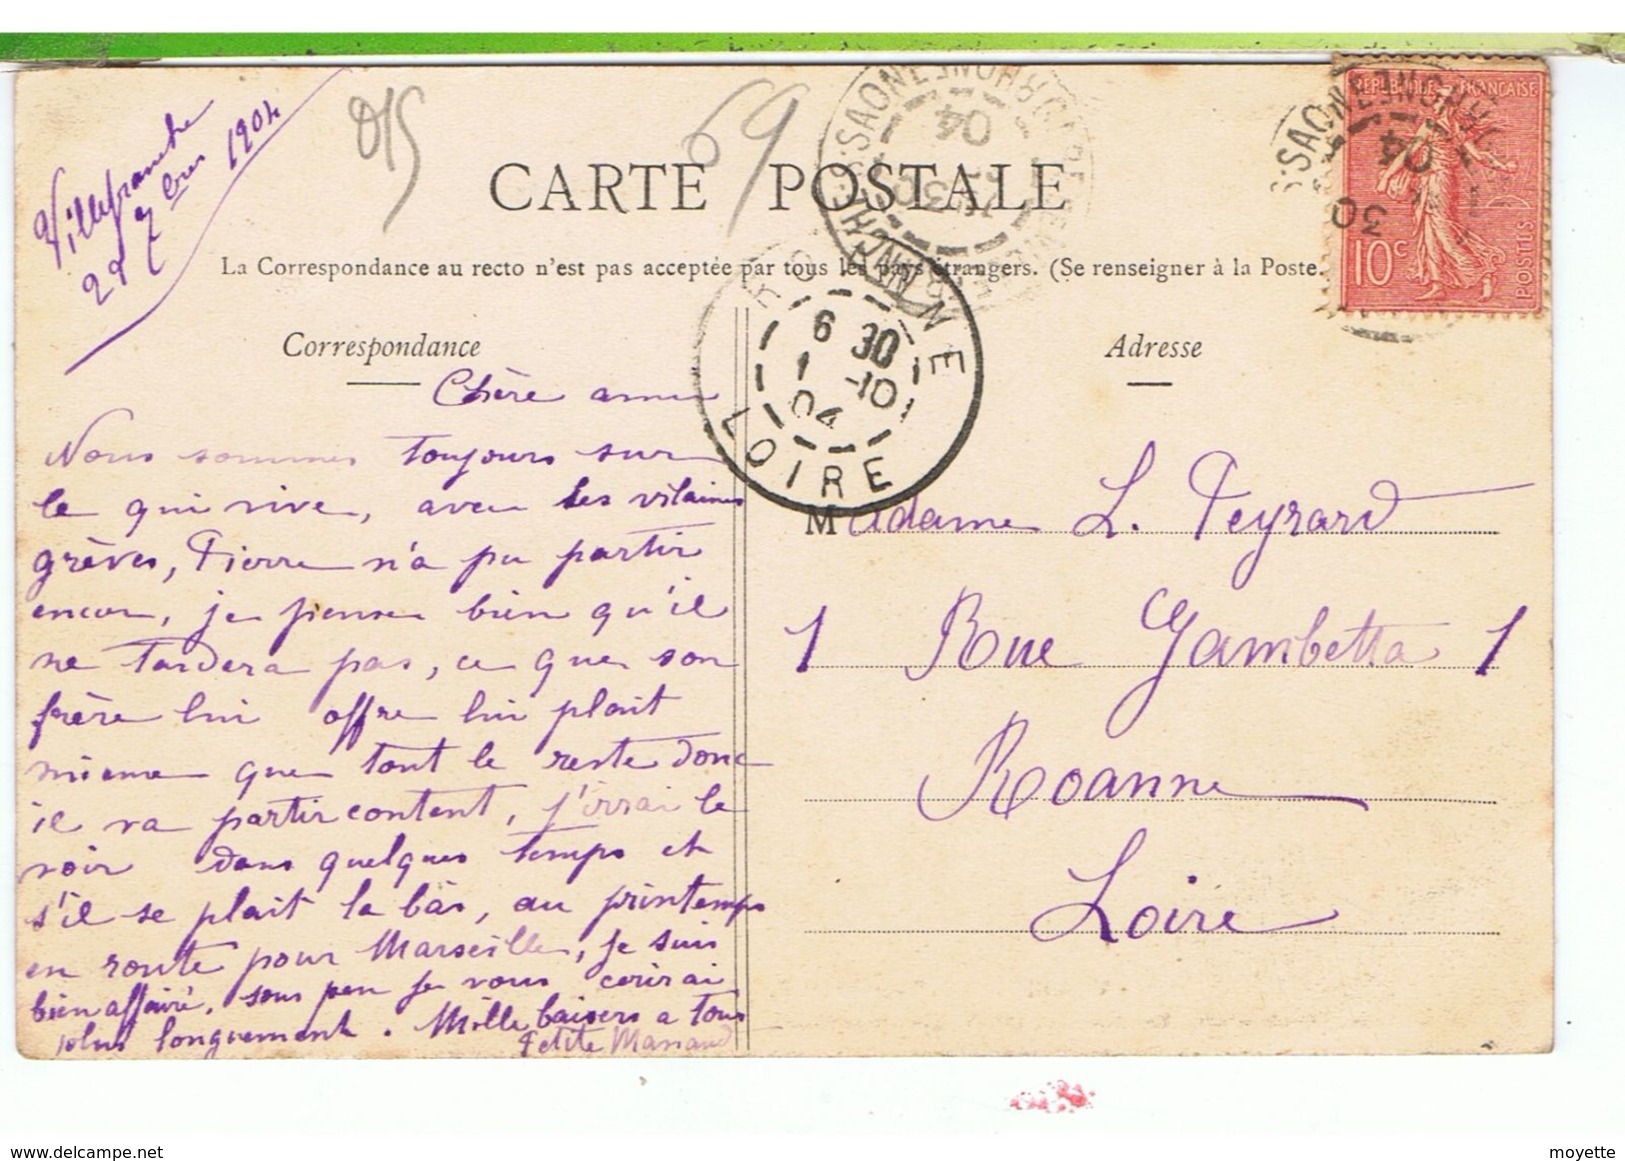 Villefranche
29 7bre 1904
015
69
CARTE POSTALE
La Correspondance au recto n'est pas acceptée par tous les pays étrangers. (Se renseigner à la Poste.
Correspondance
Chère amie
Nous sommes toujours sur
le qui vive, avec les vilaines
grèves, Pierre n'a pu partir
encore, je pense bien qu'il
ne tardera pas, ce que son
frère lui offre lui plait
mieux que tout le reste donc
il va partir content, j'irrai le
voir dans quelques temps et
s'il se plait la bàs, au printemps
en route pour Marseille, je suis
bien affairé, sous peu je vous écrirai
plus longuement. Mille baisers a tous
Petite
Adresse
Madame L. Peyrard
1 Rue Gambetta 1
Roanne
Loire
ROANNE
6 30
1 -10
04
LOIRE
S-SAONE
RHONE
04
30
REPUBLIQUE FRANÇAISE
10c
POSTES
moyette